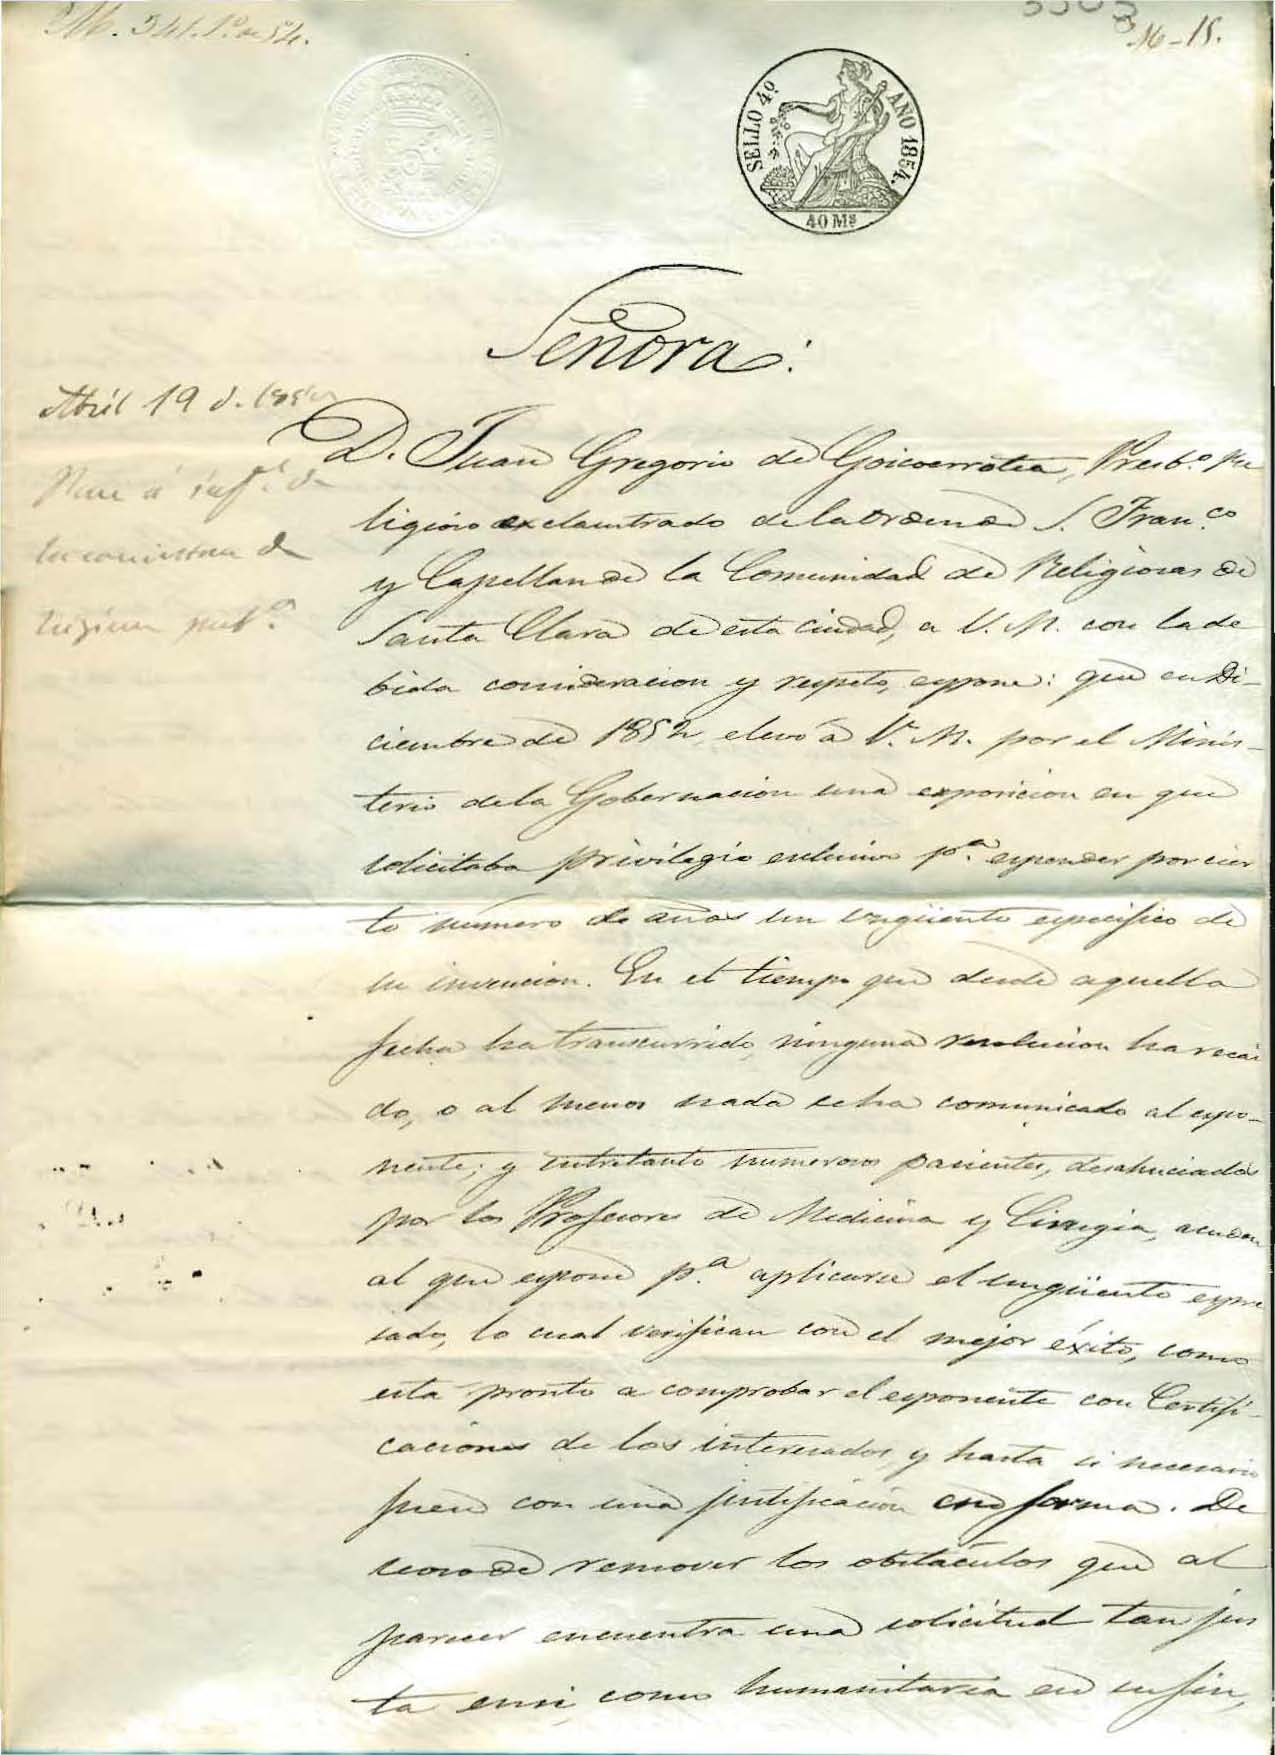 M. 341. 1º a 54.
3303
M-15.
SELLO 4º AÑO 1854.
40 Ms
Señora:
Abril 19 d. 1854
Pase á inf.e de
la comision de
higiene pub.ª
D. Juan Gregorio de Goicoerrotea, Presb.º Re
ligioso exclaustrado de la orden de S. Fran.co
y Capellan de la Comunidad de Religiosas de
Santa Clara de esta ciudad, a V. M. con la de
bida consideracion y respeto, espone: que en Di-
ciembre de 1852, elevó a V. M. por el Minis-
terio de la Gobernacion una exposicion en que
solicitaba privilegio esclusivo p.ª espender por cier
to número de años un ungüento específico de
su invencion. En el tiempo que desde aquella
fecha ha transcurrido, ninguna resolucion ha recai
do, o al menos nada se ha comunicado al espo-
nente; y entretanto numerosos pacientes, desahuciados
por los Profesores de Medicina y Cirugia, acuden
al que espone p.ª aplicarse el ungüento espre
sado, lo cual verifican con el mejor éxito, como
esta pronto a comprobar el esponente con Certifi-
caciones de los interesados, y hasta si necesario
fuera con una justificacion en forma. De
seoso de remover los obstáculos que al
parecer encuentra una solicitud tan jus
ta en si, como humanitaria en su fin,